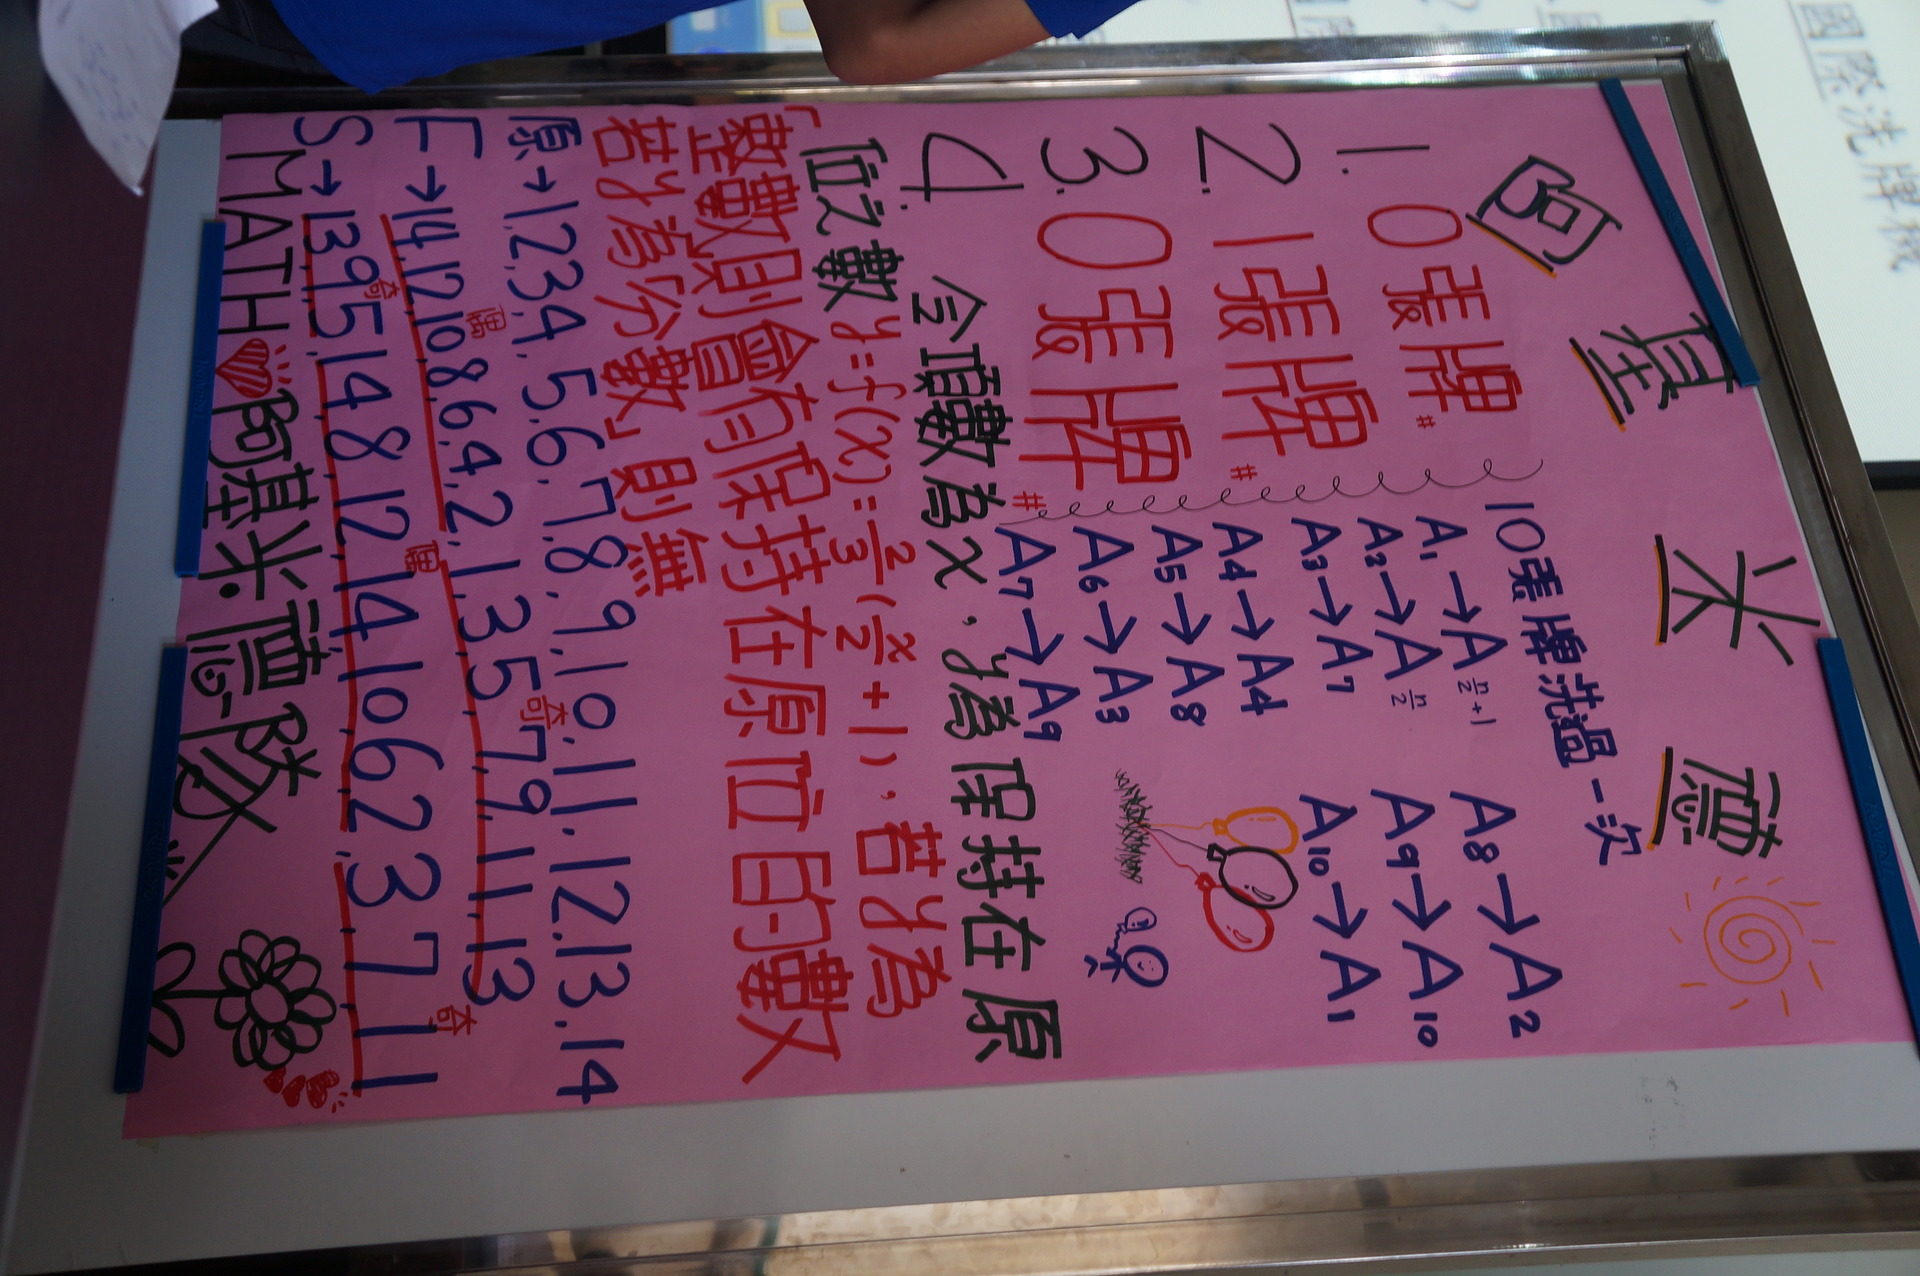 國際洗牌機
阿基米德
1. 0張牌#
2. 1張牌#
3. 0張牌#
10張牌洗過一次
A₁→A n/2+1
A₂→A n/2
A₃→A₇
A₄→A₄
A₅→A₈
A₆→A₃
A₇→A₉
A₈→A₂
A₉→A₁₀
A₁₀→A₁
4. 令項數為x，y為保持在原
位之數y=f(x)=2/3(x/2+1)，若y為
「整數」則會有保持在原位的數
若y為「分數」則無
原→1,2,3,4,5,6,7,8,9,10,11,12,13,14
偶 奇
F→14,12,10,8,6,4,2,1,3,5,7,9,11,13
奇 偶 奇
S→13,9,5,14,8,12,14,10,6,2,3,7,11
MATH阿基米德隊